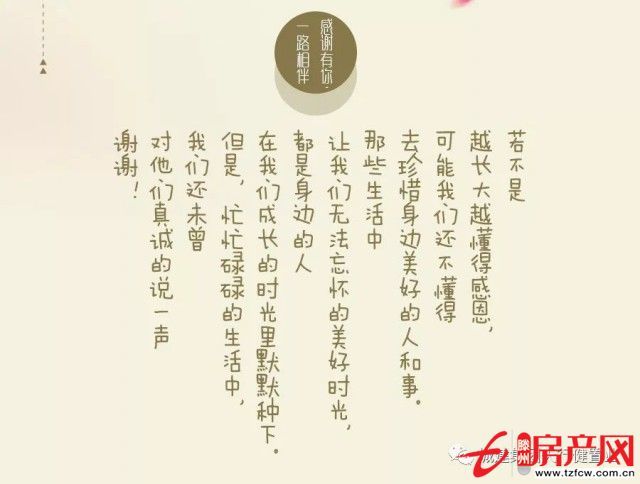 感谢有你，
一路相伴
若不是
越长大越懂得感恩，
可能我们还不懂得
去珍惜身边美好的人和事。
那些生活中
让我们无法忘怀的美好时光，
都是身边的人
在我们成长的时光里默默种下。
但是，忙忙碌碌的生活中，
我们还未曾
对他们真诚的说一声
谢谢！
滕州
房产网
www.tzfcw.com.cn